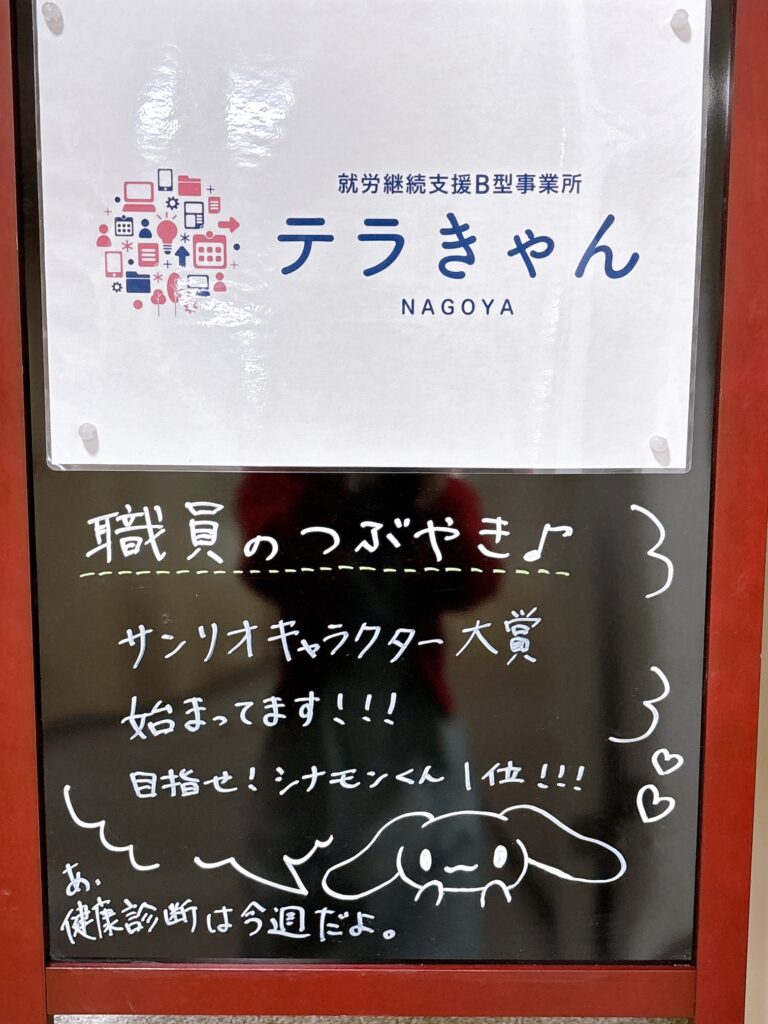 就労継続支援B型事業所
テラきゃん
NAGOYA
職員のつぶやき♪
サンリオキャラクター大賞
始まってます!!!
目指せ!シナモンくん1位!!!
あ、
健康診断は今週だよ。